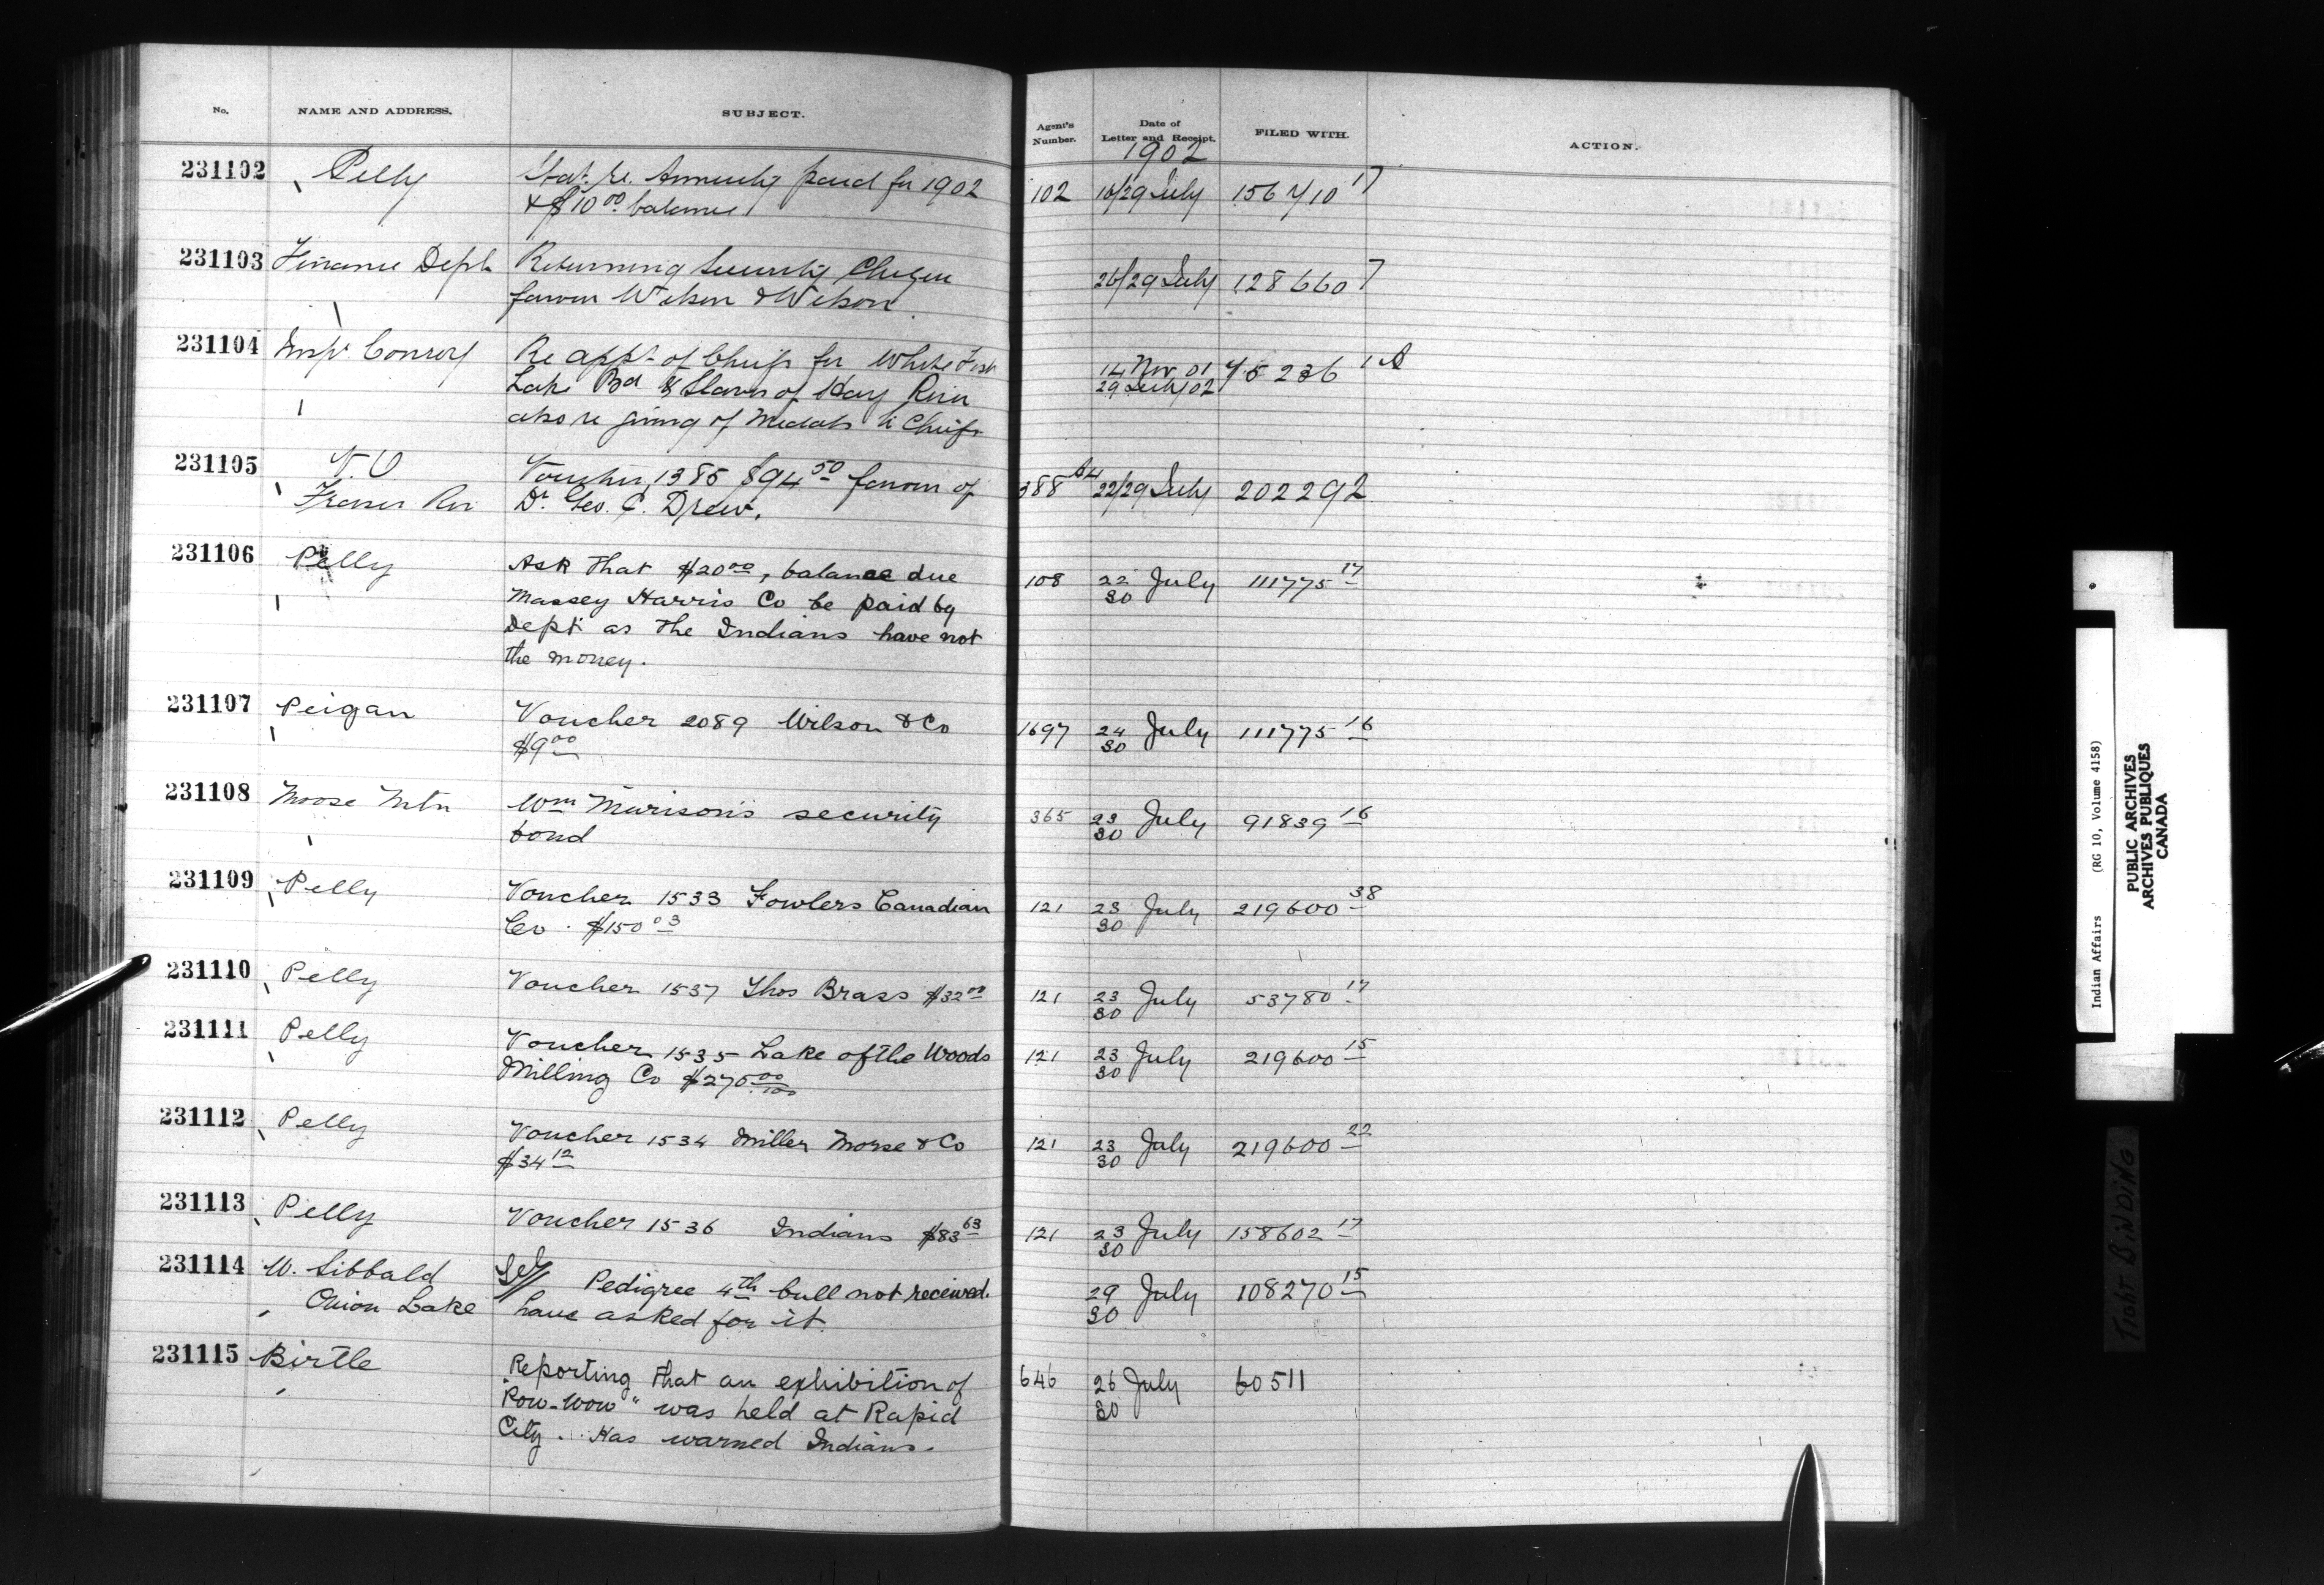 No. NAME AND ADDRESS. SUBJECT. Agent's Number. Date of Letter and Receipt. FILED WITH. ACTION.
1902
231102 Pelly Stat. re. Annuity paid for 1902 102 16/29 July 156710 17
& $10 00 balance
231103 Finance Dept Returning Security Cheque 26/29 July 128660 7
favour Wilson & Wilson.
231104 Insp. Conroy Re appt of Chiefs for White Fish 14 Nov 01 75236 1A
Lake Bd & Slaves of Hay River 29 July 02
also re giving of Medals to Chiefs
231105 V. O Voucher 1385 $94 50 favour of 388 22/29 July 202292
Fraser Riv Dr. Geo. C. Drew.
231106 Pelly Ask that $20 00, balance due 108 22 July 111775 17
Massey Harris Co be paid by 30
Dept as the Indians have not
the money.
231107 Peigan Voucher 2089 Wilson & Co 1697 24 July 111775 16
$9 00 30
231108 Moose Mtn Wm Murison's security 365 23 July 91839 16
bond 30
231109 Pelly Voucher 1533 Fowlers Canadian 121 23 July 219600 38
Co. $150 03 30
231110 Pelly Voucher 1537 Thos Brass $32 00 121 23 July 53780 17
30
231111 Pelly Voucher 1535 Lake of the Woods 121 23 July 219600 15
Milling Co $275 00/100 30
231112 Pelly Voucher 1534 Miller Morse & Co 121 23 July 219600 22
$34 12 30
231113 Pelly Voucher 1536 Indians $83 63 121 23 July 158602 17
30
231114 W. Sibbald Tel// Pedigree 4th bull not received. 29 July 108270 15
Onion Lake have asked for it. 30
231115 Birtle Reporting that an exhibition of 646 26 July 60511
"Pow-wow" was held at Rapid 30
City. Has warned Indians.
Indian Affairs (RG 10, Volume 4158)
PUBLIC ARCHIVES
ARCHIVES PUBLIQUES
CANADA
TIGHT BINDING